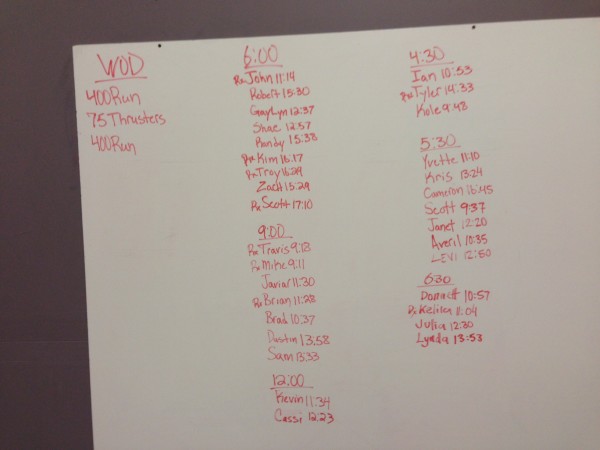 WOD
400 Run
75 Thrusters
400 Run
6:00
Rx John 11:14
Robert 15:30
GayLyn 12:37
Shae 12:57
Randy 15:38
Rx Kim 16:17
Rx Troy 16:29
Zach 15:29
Rx Scott 17:10
9:00
Rx Travis 9:13
Rx Mike 9:11
Javiar 11:30
Rx Brian 11:28
Brad 10:37
Dustin 13:58
Sam 13:33
12:00
Kevin 11:34
Cassi 12:23
4:30
Ian 10:53
Rx Tyler 14:33
Kole 9:48
5:30
Yvette 11:10
Kris 13:24
Cameron 16:45
Scott 9:37
Janet 12:20
Averil 10:35
LEVI 12:50
630
10:57
Rx 11:04
Julia 12:30
Lynda 13:53